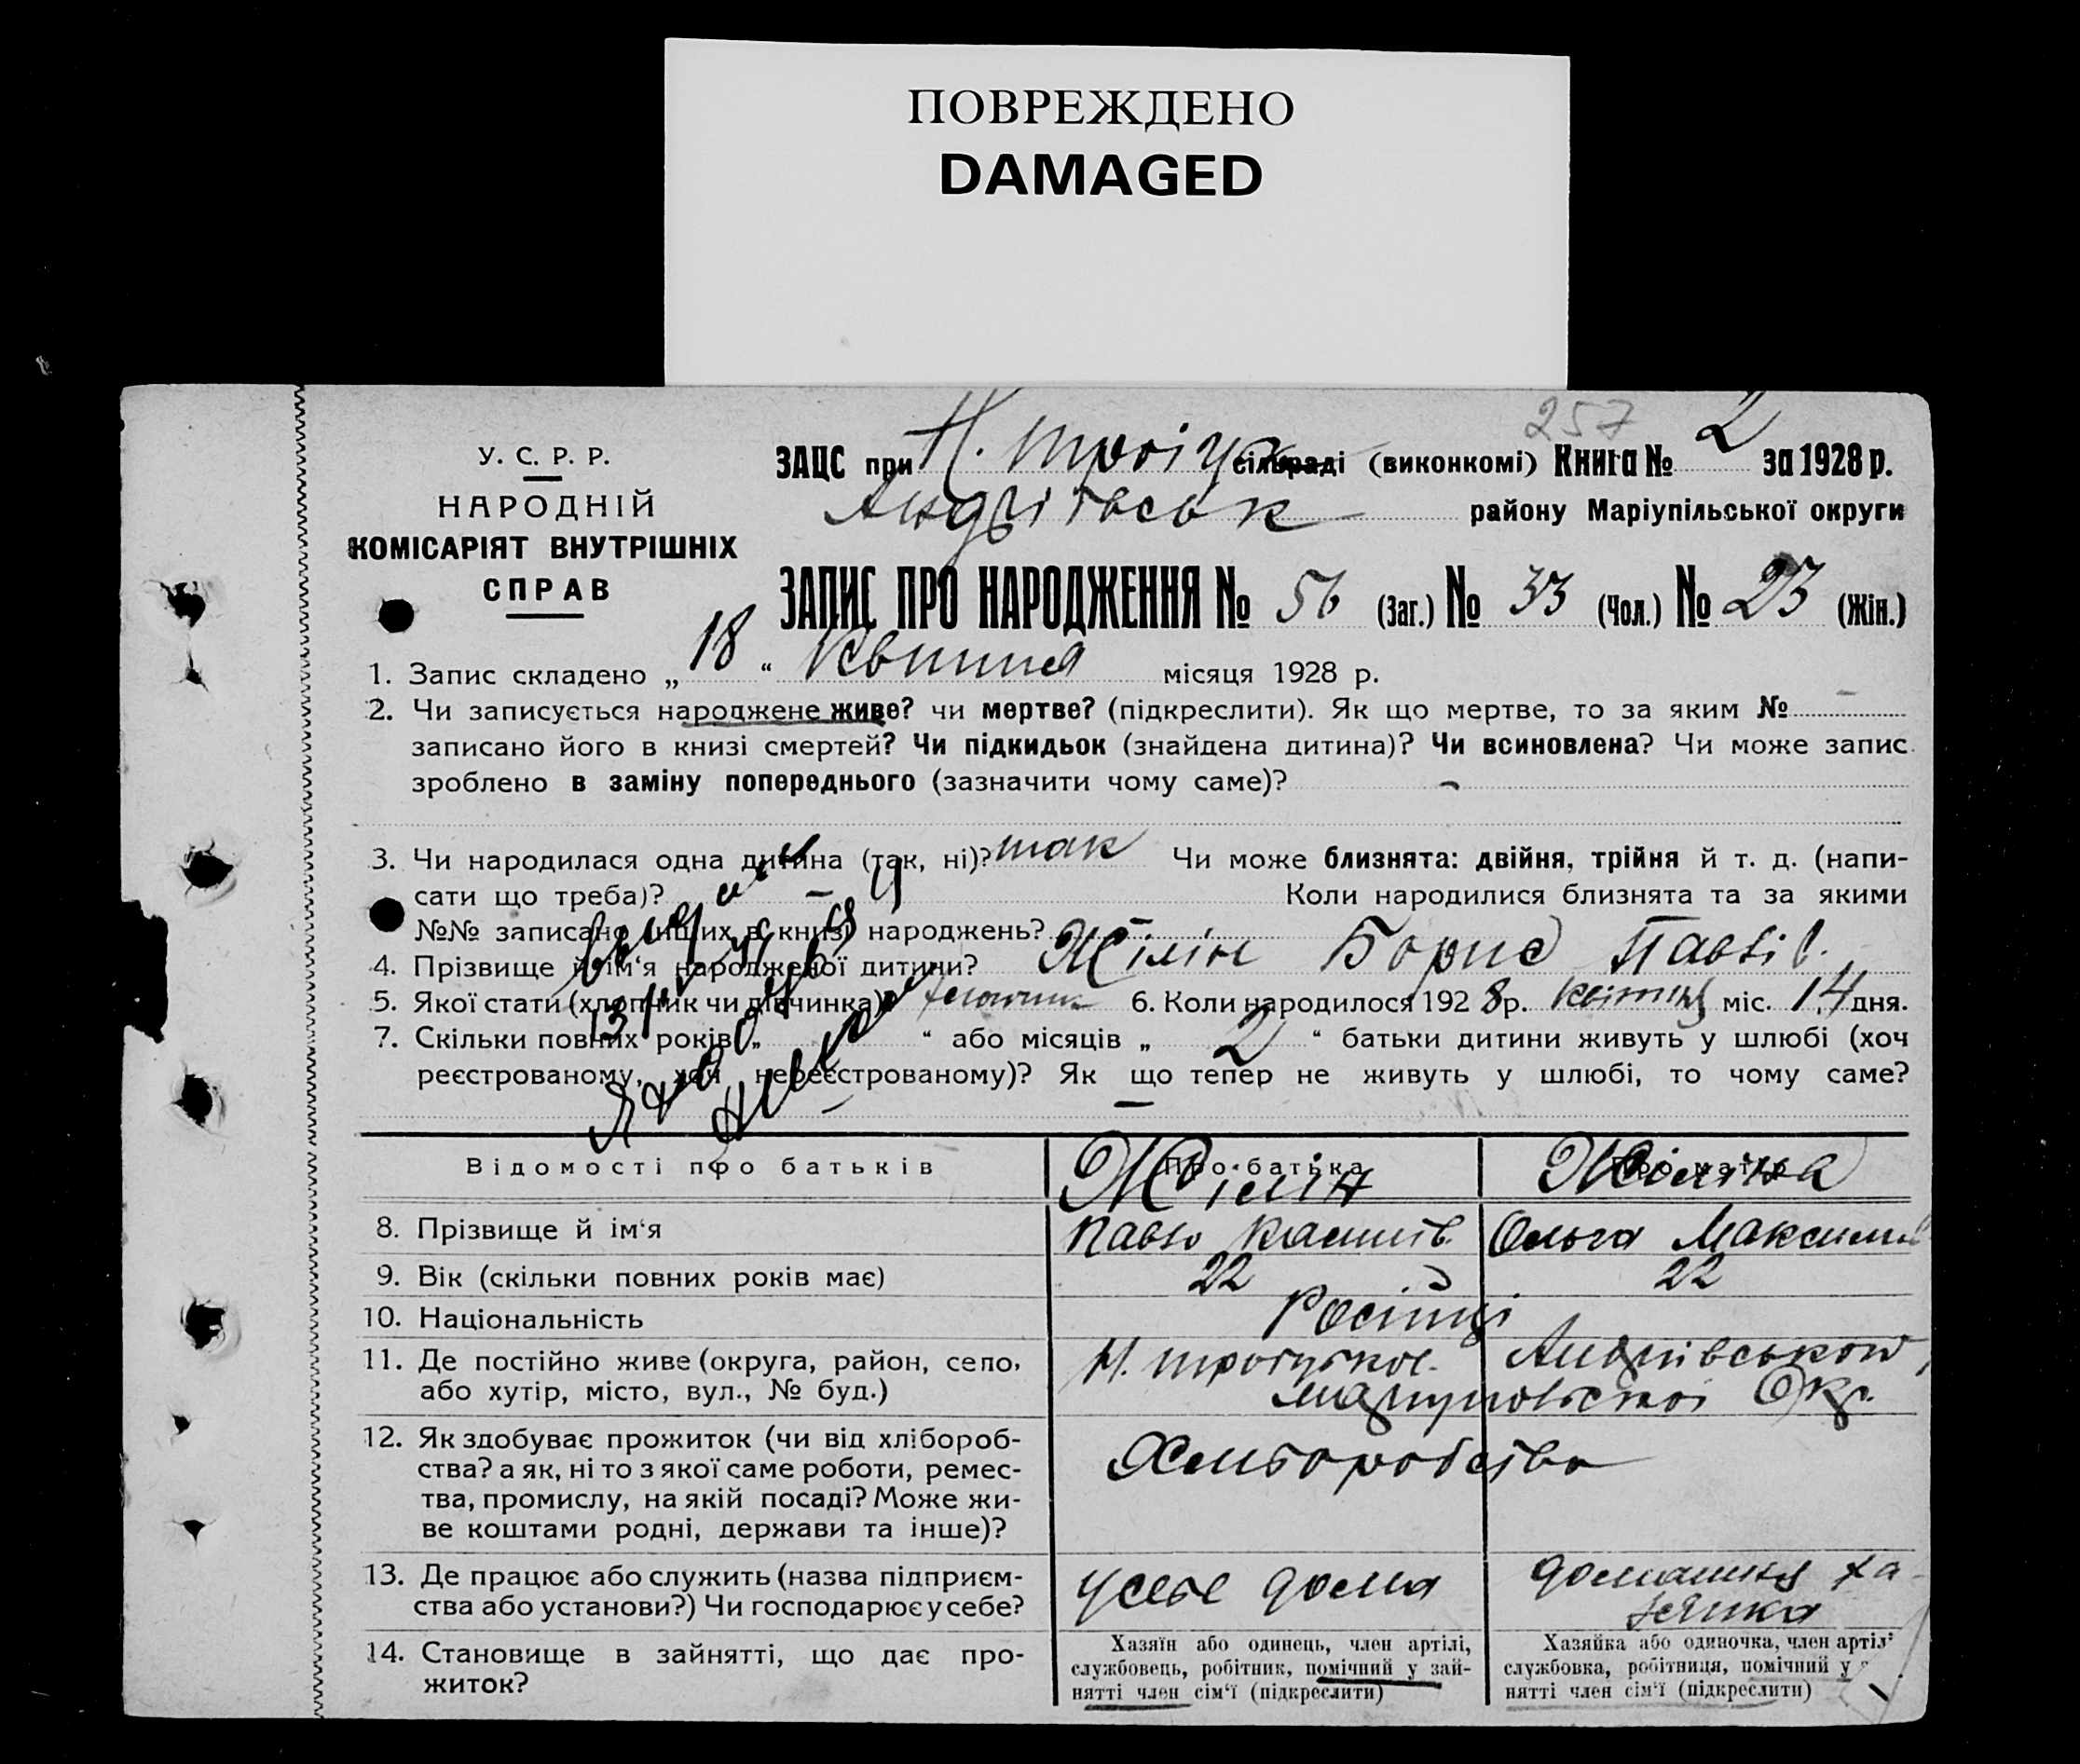 ПОВРЕЖДЕНО
DAMAGED
257
У. С. Р. Р.
НАРОДНІЙ
КОМІСАРІЯТ ВНУТРІШНІХ
СПРАВ
ЗАЦС при Н. сільраді (виконкомі) Книга № 2 за 1928 р.
району Маріупільської округи
ЗАПИС ПРО НАРОДЖЕННЯ № 56 (Заг.) № 33 (Чол.) № 23 (Жін.)
1. Запис складено „ 18 “ Квітня місяця 1928 р.
2. Чи записується народжене живе? чи мертве? (підкреслити). Як що мертве, то за яким № –
записано його в книзі смертей? Чи підкидьок (знайдена дитина)? Чи всиновлена? Чи може запис
зроблено в заміну попереднього (зазначити чому саме)? –
3. Чи народилася одна дитина (так, ні)? так Чи може близнята: двійня, трійня й т. д. (напи-
сати що треба)? – Коли народилися близнята та за якими
№№ записано інших в книзі народжень? –
4. Прізвище й ім‘я народженої дитини? Жілін Борис Павлів.
5. Якої стати (хлопчик чи дівчинка)? хлопчик 6. Коли народилося 1928 р. квітня міс. 14 дня.
7. Скільки повних років „ “ або місяців „ 2 “ батьки дитини живуть у шлюбі (хоч
реєстрованому, хоч нереєстрованому)? Як що тепер не живуть у шлюбі, то чому саме?
–
Відомості про батьків Про батька Про матір
Жілін Жіліна
8. Прізвище й ім‘я Павло Ольга Максимів
9. Вік (скільки повних років має) 22 22
10. Національність Російці
11. Де постійно живе (округа, район, село, Н. Андріївського
або хутір, місто, вул., № буд.) Маріупольської Окр.
12. Як здобуває прожиток (чи від хлібороб- Хліборобство
ства? а як, ні то з якої саме роботи, ремес-
тва, промислу, на якій посаді? Може жи-
ве коштами родні, держави та інше)?
13. Де працює або служить (назва підприєм- у себе дома домашня ха-
ства або установи?) Чи господарює у себе? зяйка
14. Становище в зайнятті, що дає про-
житок?
Хазяїн або одинець, член артілі,
службовець, робітник, помічний у зай-
нятті член сім‘ї (підкреслити)
Хазяйка або одиночка, член артіл
службовка, робітниця, помічний у
нятті член сім‘ї (підкреслити)